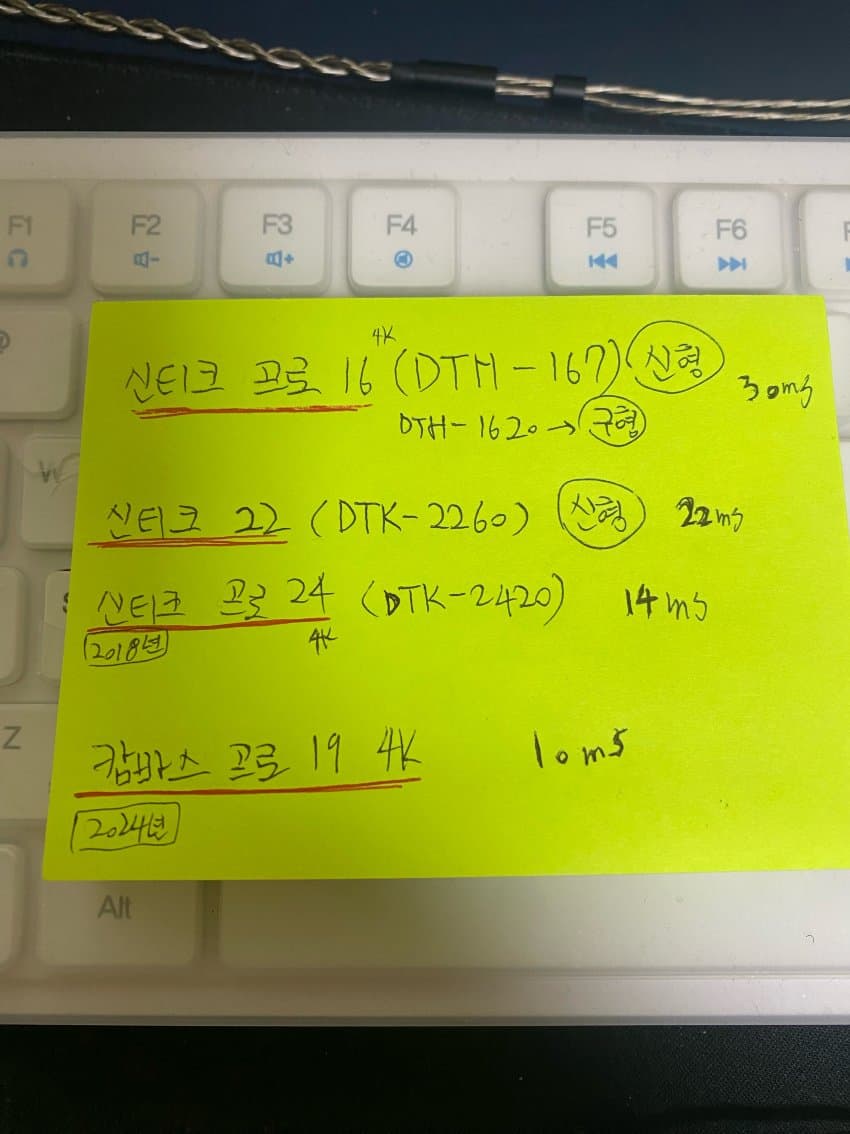 F1 F2 F3 F4 F5 F6
4K
신티크 프로 16 (DTH-167) 신형 30ms
DTH-1620 → 구형
신티크 22 (DTK-2260) 신형 22ms
신티크 프로 24 (DTK-2420) 14ms
2018년 4K
캄바스 프로 19 4K 10ms
2024년
Z
Alt